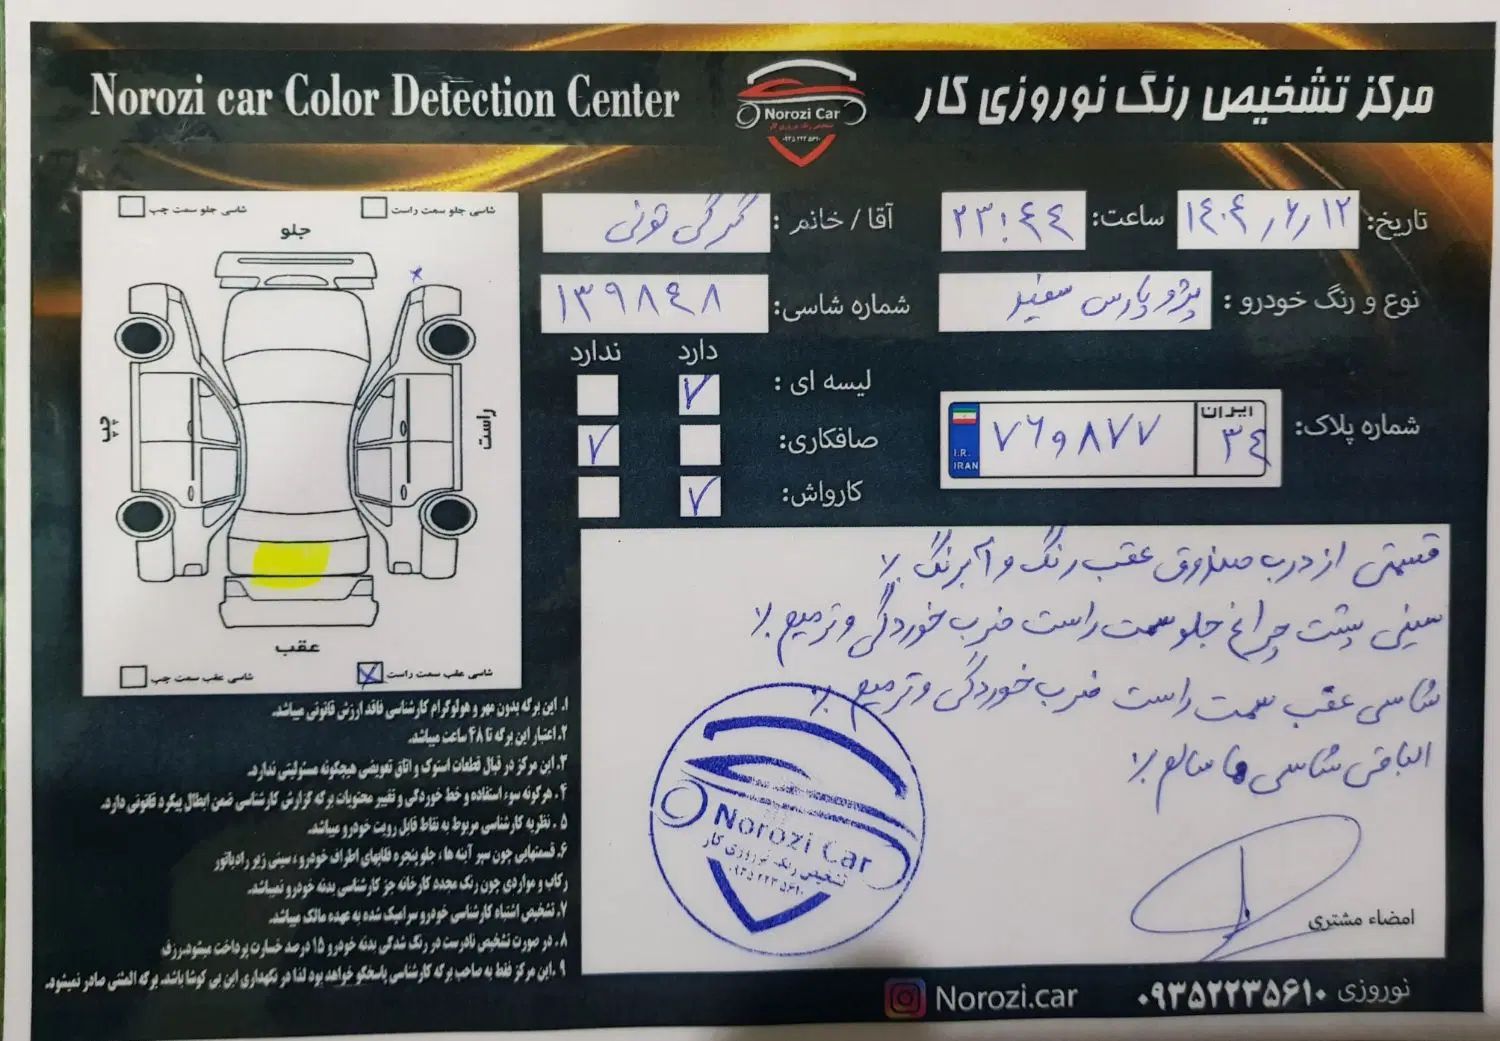 Norozi car Color Detection Center
Norozi Car
تشخیص رنگ نوروزی کار
۰۹۳۵ ۲۲۳ ۵۶۱۰
مرکز تشخیص رنگ نوروزی کار
تاریخ: ۱۴۰۴/۶/۱۲
ساعت: ۲۳:۴۴
آقا / خانم :
نوع و رنگ خودرو : پژو پارس سفید
شماره شاسی: ۱۳۹۸۴۸
دارد ندارد
لیسه ای :
صافکاری:
کارواش:
شماره پلاک:
ایران
۷۶و۸۷۷ ۳۴
I.R.
IRAN
شاسی جلو سمت راست
شاسی جلو سمت چپ
جلو
راست
چپ
عقب
شاسی عقب سمت راست
شاسی عقب سمت چپ
قسمتی از درب صندوق عقب رنگ و آبرنگ ./
سینی پشت چراغ جلو سمت راست ضرب خوردگی و ترمیم ./
شاسی عقب سمت راست ضرب خوردگی و ترمیم ./
الباقی شاسی ها سالم ./
۱. این برگه بدون مهر و هولوگرام کارشناسی فاقد ارزش قانونی میباشد.
۲. اعتبار این برگه تا ۴۸ ساعت میباشد.
۳. این مرکز در قبال قطعات استوک و اتاق تعویضی هیچگونه مسئولیتی ندارد.
۴. هرگونه سوء استفاده و خط خوردگی و تغییر محتویات برگه گزارش کارشناسی ضمن ابطال پیگرد قانونی دارد.
۵. نظریه کارشناسی مربوط به نقاط قابل رویت خودرو میباشد.
۶. قسمتهایی چون سپر آینه ها، جلو پنجره قلابهای اطراف خودرو، سینی زیر رادیاتور
رکاب و مواردی چون رنگ مجدد کارخانه جز کارشناسی بدنه خودرو نمیباشد.
۷. تشخیص اشتباه کارشناسی خودرو سرامیک شده به عهده مالک میباشد.
۸. در صورت تشخیص نادرست در رنگ شدگی بدنه خودرو ۱۵ درصد خسارت پرداخت میشود.
۹. این مرکز فقط به صاحب برگه کارشناسی پاسخگو خواهد بود لذا در نگهداری این بی کوشا باشد. برگه المثنی صادر نمیشود.
Norozi Car
تشخیص رنگ نوروزی کار
۰۹۳۵ ۲۲۳ ۵۶۱۰
امضاء مشتری
Norozi.car
نوروزی ۰۹۳۵۲۲۳۵۶۱۰